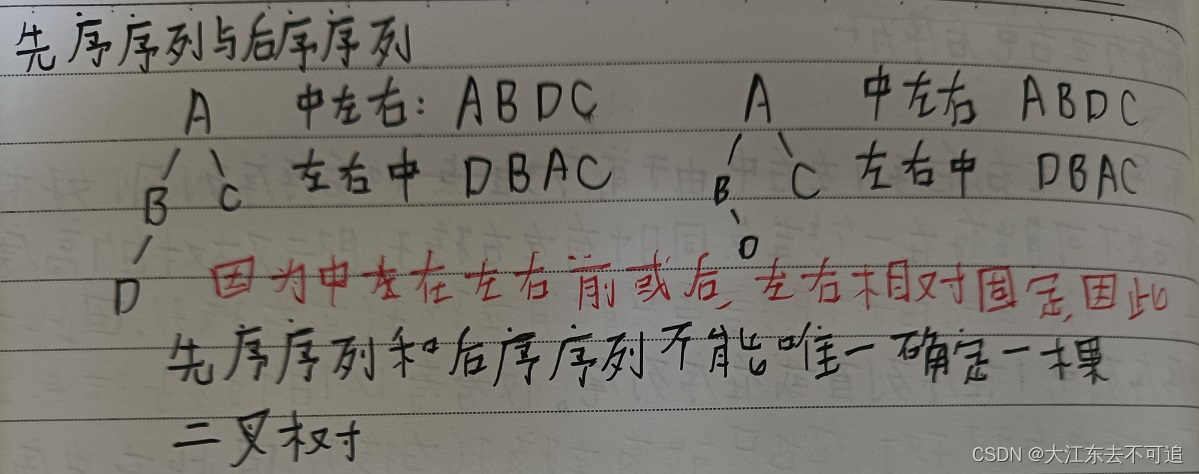 先序序列与后序序列
A 中左右: ABDC A 中左右 ABDC
B C 左右中 DBAC B C 左右中 DBAC
D
D 因为中左在左右前或后,左右相对固定,因此
先序序列和后序序列不能唯一确定一棵
二叉树
CSDN @大江东去不可追